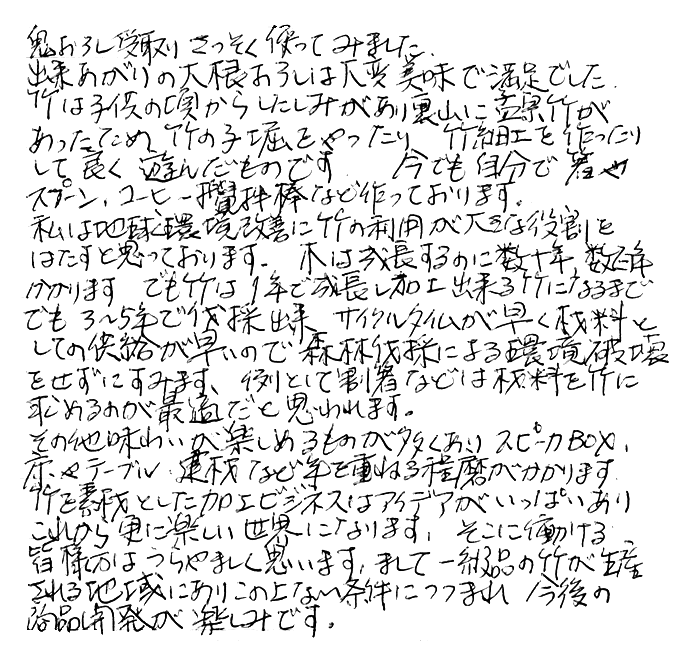 鬼おろし受取りさっそく使ってみました.
出来あがりの大根おろしは大変美味で満足でした.
竹は子供の頃からしたしみがあり裏山に孟宗竹が
あったため、竹の子堀をやったり 竹細工を作ったり
して良く遊んだものです 今でも自分で箸や
スプーン、コーヒー攪拌棒など作っております.
私は地球環境改善に竹の利用が大きな役割を
はたすと思っております. 木は成長するのに数十年、数百年
かかります でも竹は1年で成長し加工出来る竹になるまで
でも3〜5年で伐採出来 サイクルタイムが早く材料と
しての供給が早いので森林伐採による環境破壊
をせずにすみます、 例として割箸などは材料を竹に
求めるのが最適だと思われます。
その他味わいが楽しめるものが多くあり スピーカBOX、
床やテーブル、建材など年を重ねる程磨がかかります
竹を素材とした加工ビジネスはアイデアがいっぱいあり
これから更に楽しい世界になります. そこに働ける
皆様方はうらやましく思います. まして一級品の竹が生産
される地域にありこの上ない条件につつまれ 今後の
商品開発が楽しみです。